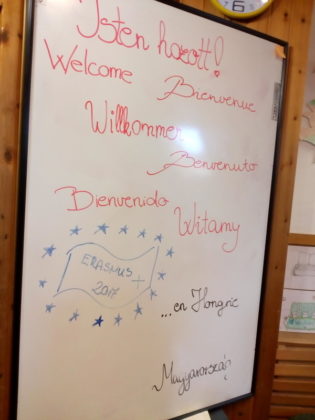 Isten hozott!
Welcome
Bienvenue
Willkommen
Benvenuto
Bienvenido
Witamy
ERASMUS+
2017
...en Hongrie